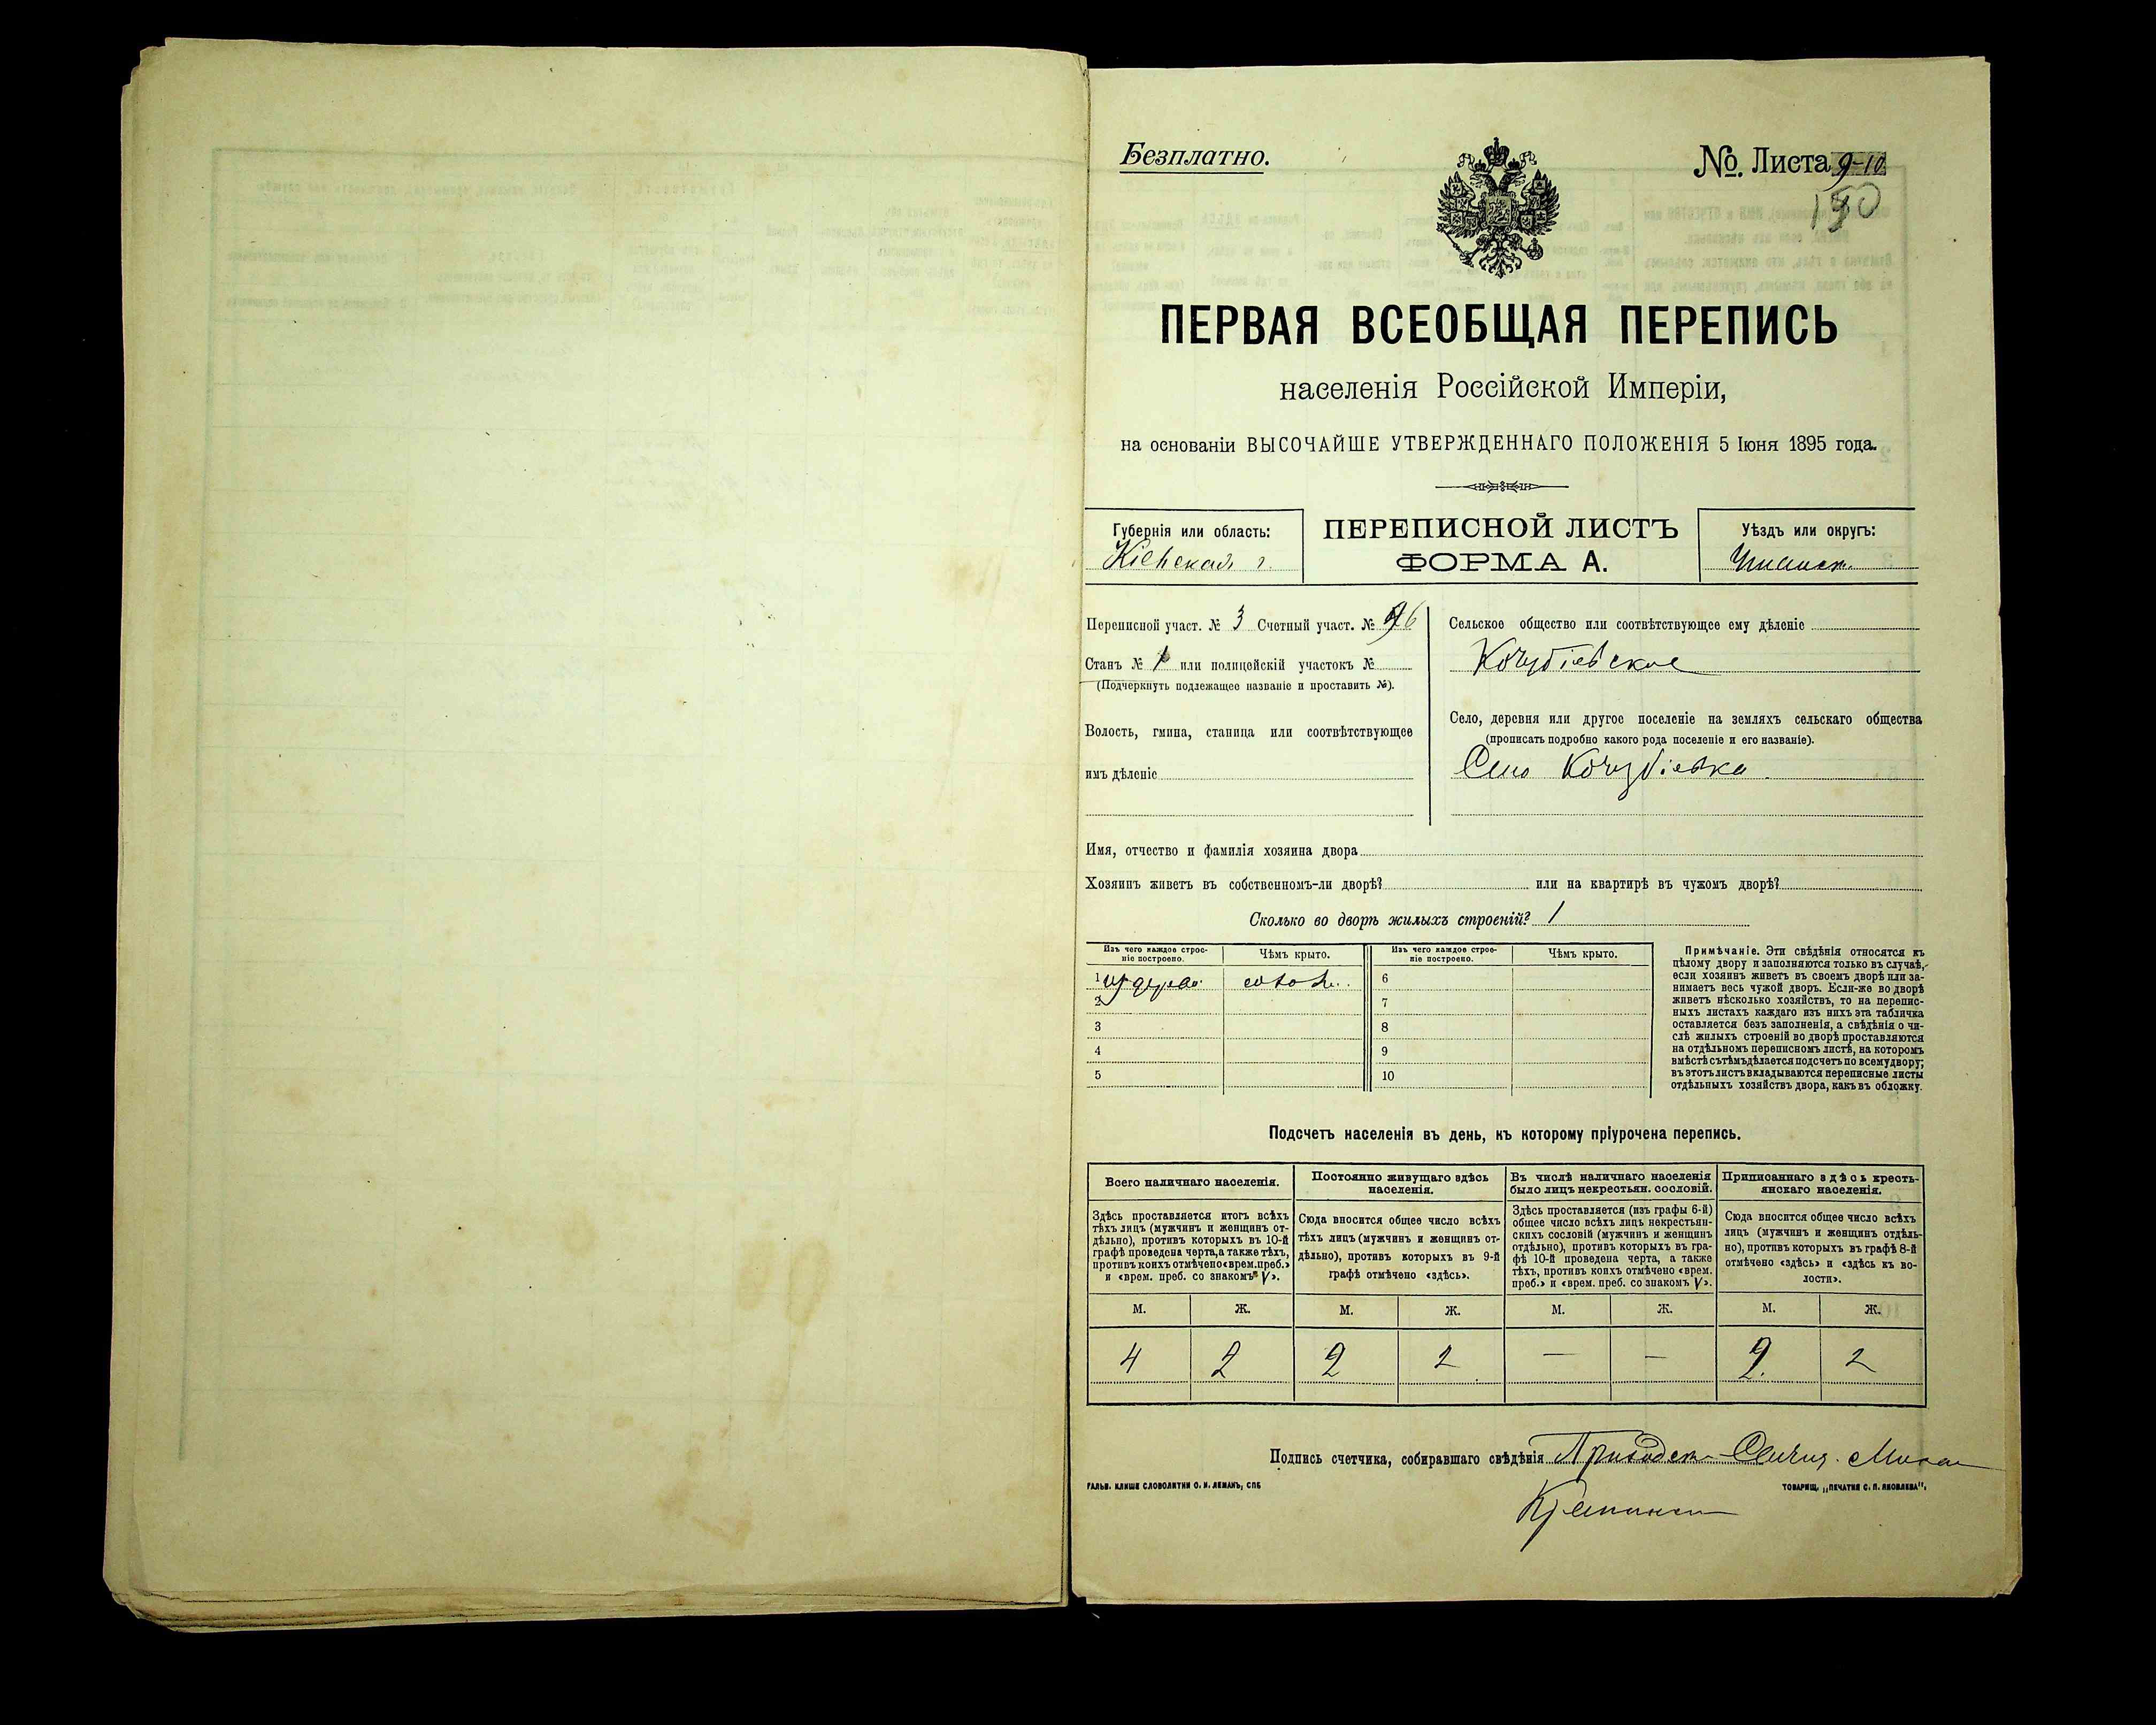 Безплатно.
№. Листа 9-10
ПЕРВАЯ ВСЕОБЩАЯ ПЕРЕПИСЬ
населенія Россійской Имперіи,
на основаніи ВЫСОЧАЙШЕ УТВЕРЖДЕННАГО ПОЛОЖЕНІЯ 5 Іюня 1895 года.
Губернія или область:
Кіевская г.
ПЕРЕПИСНОЙ ЛИСТЪ
ФОРМА А.
Уѣздъ или округъ:
Переписной участ. № 3 Счетный участ. №
Станъ № 1 или полицейскій участокъ №
(Подчеркнуть подлежащее названіе и проставить №).
Волость, гмина, станица или соотвѣтствующее
имъ дѣленіе
Сельское общество или соотвѣтствующее ему дѣленіе
Кочубіевское
Село, деревня или другое поселеніе на земляхъ сельскаго общества
(прописать подробно какого рода поселеніе и его названіе).
Село Кочубіевка
Имя, отчество и фамилія хозяина двора
Хозяинъ живетъ въ собственномъ-ли дворѣ? или на квартирѣ въ чужомъ дворѣ?
Сколько во дворѣ жилыхъ строеній? 1
Изъ чего каждое строе-
ніе построено.
Чѣмъ крыто.
Изъ чего каждое строе-
ніе построено.
Чѣмъ крыто.
1 изъ дерева солом.
2
3
4
5
6
7
8
9
10
Примѣчаніе. Эти свѣдѣнія относятся къ
цѣлому двору и заполняются только въ случаѣ,
если хозяинъ живетъ въ своемъ дворѣ или за-
нимаетъ весь чужой дворъ. Если-же во дворѣ
живетъ нѣсколько хозяйствъ, то на перепис-
ныхъ листахъ каждаго изъ нихъ эта табличка
оставляется безъ заполненія, а свѣдѣнія о чи-
слѣ жилыхъ строеній во дворѣ проставляются
на отдѣльномъ переписномъ листѣ, на которомъ
вмѣстѣ съ тѣмъ дѣлается подсчетъ по всему двору;
въ этотъ листъ вкладываются переписные листы
отдѣльныхъ хозяйствъ двора, какъ въ обложку.
Подсчетъ населенія въ день, къ которому пріурочена перепись.
Всего наличнаго населенія.
Постоянно живущаго здѣсь
населенія.
Въ числѣ наличнаго населенія
было лицъ некрестьян. сословій.
Приписаннаго здѣсь кресть-
янскаго населенія.
Здѣсь проставляется итогъ всѣхъ
тѣхъ лицъ (мужчинъ и женщинъ от-
дѣльно), противъ которыхъ въ 10-й
графѣ проведена черта, а также тѣхъ,
противъ коихъ отмѣчено «врем. преб.»
и «врем. преб. со знакомъ V».
Сюда вносится общее число всѣхъ
тѣхъ лицъ (мужчинъ и женщинъ от-
дѣльно), противъ которыхъ въ 9-й
графѣ отмѣчено «здѣсь».
Здѣсь проставляется (изъ графы 6-й)
общее число всѣхъ лицъ некрестьян-
скихъ сословій (мужчинъ и женщинъ
отдѣльно), противъ которыхъ въ гра-
фѣ 10-й проведена черта, а также
тѣхъ, противъ коихъ отмѣчено «врем.
преб.» и «врем. преб. со знакомъ V».
Сюда вносится общее число всѣхъ
лицъ (мужчинъ и женщинъ отдѣль-
но), противъ которыхъ въ графѣ 8-й
отмѣчено «здѣсь» и «здѣсь къ во-
лости».
М. Ж. М. Ж. М. Ж. М. Ж.
4 2 2 2 — — 2. 2
Подпись счетчика, собиравшаго свѣдѣнія
ГАЛЬВ. КЛИШЕ СЛОВОЛИТНИ О. И. ЛЕМАНЪ, СПБ
ТОВАРИЩ. „ПЕЧАТНЯ С. П. ЯКОВЛЕВА".